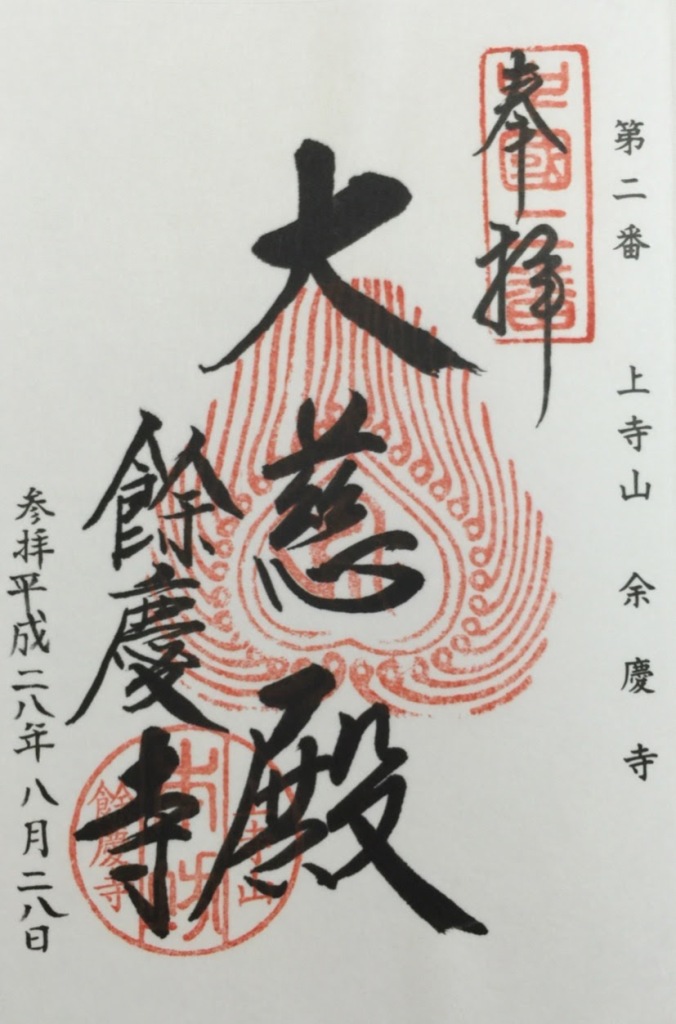 第二番 上寺山 余慶寺
奉拝
大慈殿
餘慶寺
参拝平成二八年八月二八日
餘慶寺